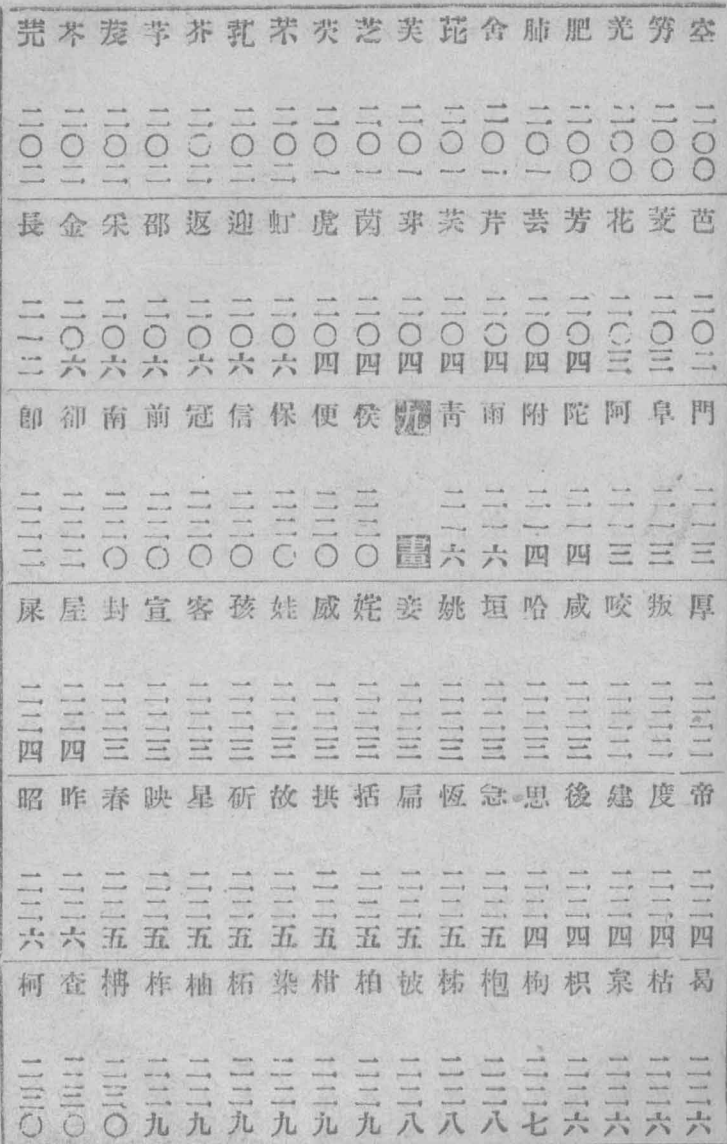 空 二〇〇
竻 二〇〇
羌 二〇〇
肥 二〇〇
肺 二〇一
舍 二〇一
芘 二〇一
芙 二〇一
芝 二〇一
芡 二〇一
芣 二〇二
芤 二〇二
芥 二〇二
芧 二〇二
芨 二〇二
芩 二〇二
芫 二〇二
芭 二〇二
芰 二〇三
花 二〇三
芳 二〇四
芸 二〇四
芹 二〇四
芺 二〇四
芽 二〇四
苠 二〇四
虎 二〇四
虹 二〇六
迎 二〇六
返 二〇六
邵 二〇六
采 二〇六
金 二〇六
長 二一二
門 二一三
阜 二一三
阿 二一三
陀 二一四
附 二一四
雨 二一六
靑 二一六
九畫
侯 二二〇
便 二二〇
保 二二〇
信 二二〇
冠 二二〇
前 二二〇
南 二二〇
卻 二二二
卽 二二二
厚 二二二
叛 二二二
咬 二二二
咸 二二三
哈 二二三
垣 二二三
姚 二二三
姜 二二三
姹 二二三
威 二二三
娃 二二三
孩 二二三
客 二二三
宣 二二三
封 二二三
屋 二二四
屎 二二四
帝 二二四
度 二二四
建 二二四
後 二二四
思 二二四
急 二二五
恆 二二五
扁 二二五
括 二二五
拱 二二五
故 二二五
斫 二二五
星 二二五
映 二二五
春 二二五
昨 二二六
昭 二二六
曷 二二六
枯 二二六
枲 二二六
枳 二二六
枸 二二七
枹 二二八
柹 二二八
柀 二二八
柏 二二九
柑 二二九
染 二二九
柘 二二九
柚 二二九
柞 二二九
柟 二三〇
查 二三〇
柯 二三〇